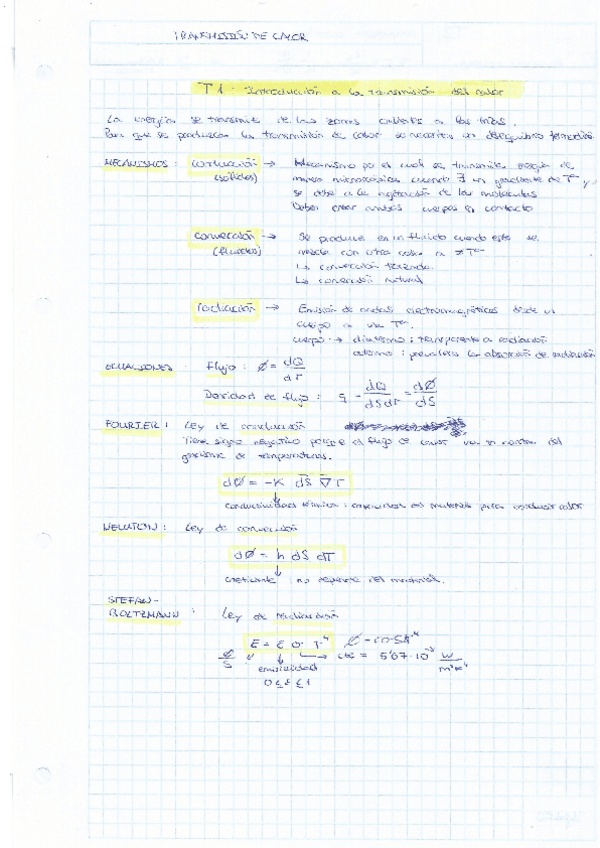 TRANSMISIÓN DE CALOR
T1. Introducción a la transmisión del calor
La energía se transmite de las zonas calientes a las frías.
Para que se produzca la transmisión de calor se necesita un desequilibrio térmico
MECANISMOS: Conducción → Mecanismo por el cual se transmite energía de
(sólidos) manera microscópica cuando ∃ un gradiente de Tª y
se debe a la agitación de las moléculas
Deben estar ambos cuerpos en contacto
Convección → Se produce en un fluido cuando este se
(fluidos) mezcla con otro a ≠ Tª
↳ convección forzada
↳ convección natural
radiación → Emisión de ondas electromagnéticas desde un
cuerpo a una Tª.
cuerpo → diatérmano: transparente a radiación
: la absorción de radiación
ECUACIONES: Flujo: Ø = dQ/dt
Densidad de flujo: q = dQ/dSdt = dØ/dS
FOURIER: Ley de conducción
Tiene signo negativo porque el flujo de calor va en contra del
gradiente de temperaturas.
dØ = -K dS ∇T
conductividad térmica: del material para conducir calor
NEWTON: Ley de convección
dØ = h dS dT
coeficiente: no depende del material.
STEFAN-
BOLTZMANN: Ley de radiación
E = ε σ T⁴
Ø/S
→ cte = 5'67·10⁻⁸ W/m²K⁴
emisividad
0 ≤ ε ≤ 1